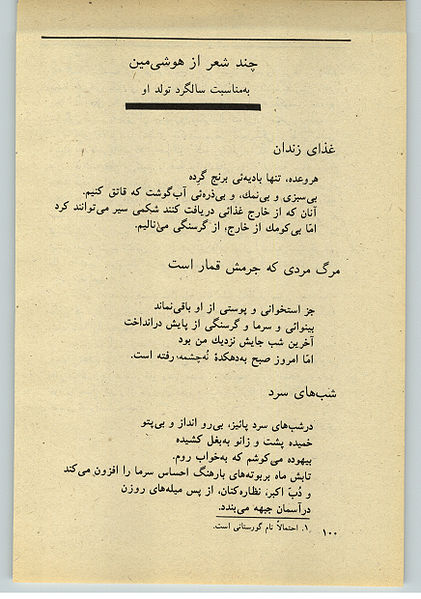 چند شعر از هوشی‌مین
به‌مناسبت سالگرد تولد او
غذای زندان
هروعده، تنها بادیه‌ئی برنج گرده
بی‌سبزی و بی‌نمك، و بی‌ذره‌ئی آب‌گوشت که قاتق کنیم.
آنان که از خارج غذائی دریافت کنند شکمی سیر می‌توانند کرد
امّا بی‌کومك از خارج، از گرسنگی می‌نالیم.
مرگ مردی که جرمش قمار است
جز استخوانی و پوستی از او باقی‌نماند
بینوائی و سرما و گرسنگی از پایش درانداخت
آخرین شب جایش نزدیك من بود
امّا امروز صبح به‌دهکدۀ نُه‌چشمه۱رفته است.
شب‌های سرد
درشب‌های سرد پائیز، بی‌رو انداز و بی‌پتو
خمیده پشت و زانو به‌بغل کشیده
بیهوده می‌کوشم که به‌خواب روم.
تابش ماه بربوته‌های بارهنگ احساس سرما را افزون می‌کند
و دُبّ اکبر، نظاره‌کنان، از پس میله‌های روزن
درآسمان جبهه می‌بندد.
۱. احتمالاً نام گورستانی است.
۱۰۰